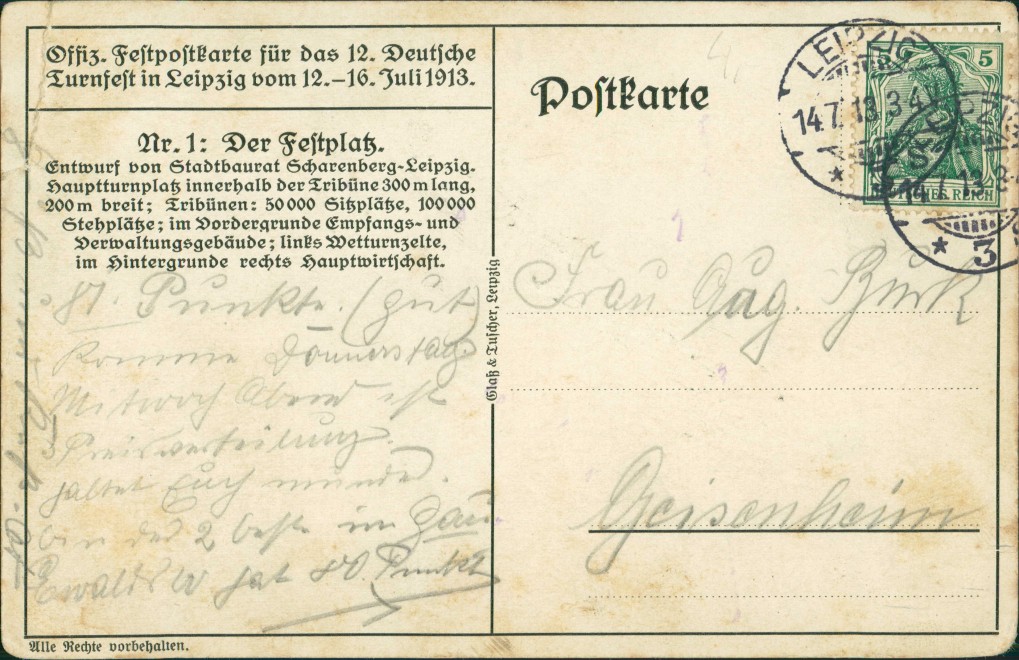 Offiz. Festpostkarte für das 12. Deutsche
Turnfest in Leipzig vom 12.-16. Juli 1913.
Nr. 1: Der Festplatz.
Entwurf von Stadtbaurat Scharenberg-Leipzig.
Hauptturnplatz innerhalb der Tribüne 300 m lang,
200 m breit; Tribünen: 50000 Sitzplätze, 100000
Stehplätze; im Vordergrunde Empfangs- und
Verwaltungsgebäude; links Wetturnzelte,
im Hintergrunde rechts Hauptwirtschaft.
81. Punkte. (gut)
Komme Donnerstag.
Mitwoch Abend ist
Preisverteilung.
haltet Euch munder.
bin der 2 beste im Gau
Ewald hat 80. Punkte
Alle Rechte vorbehalten.
Glaß & Tuscher, Leipzig
Postkarte
LEIPZIG
14.7.13.3-4
5
DEUTSCHES REICH
14.7.13.3-4
* 3
Frau Aug. Burk
Geisenheim